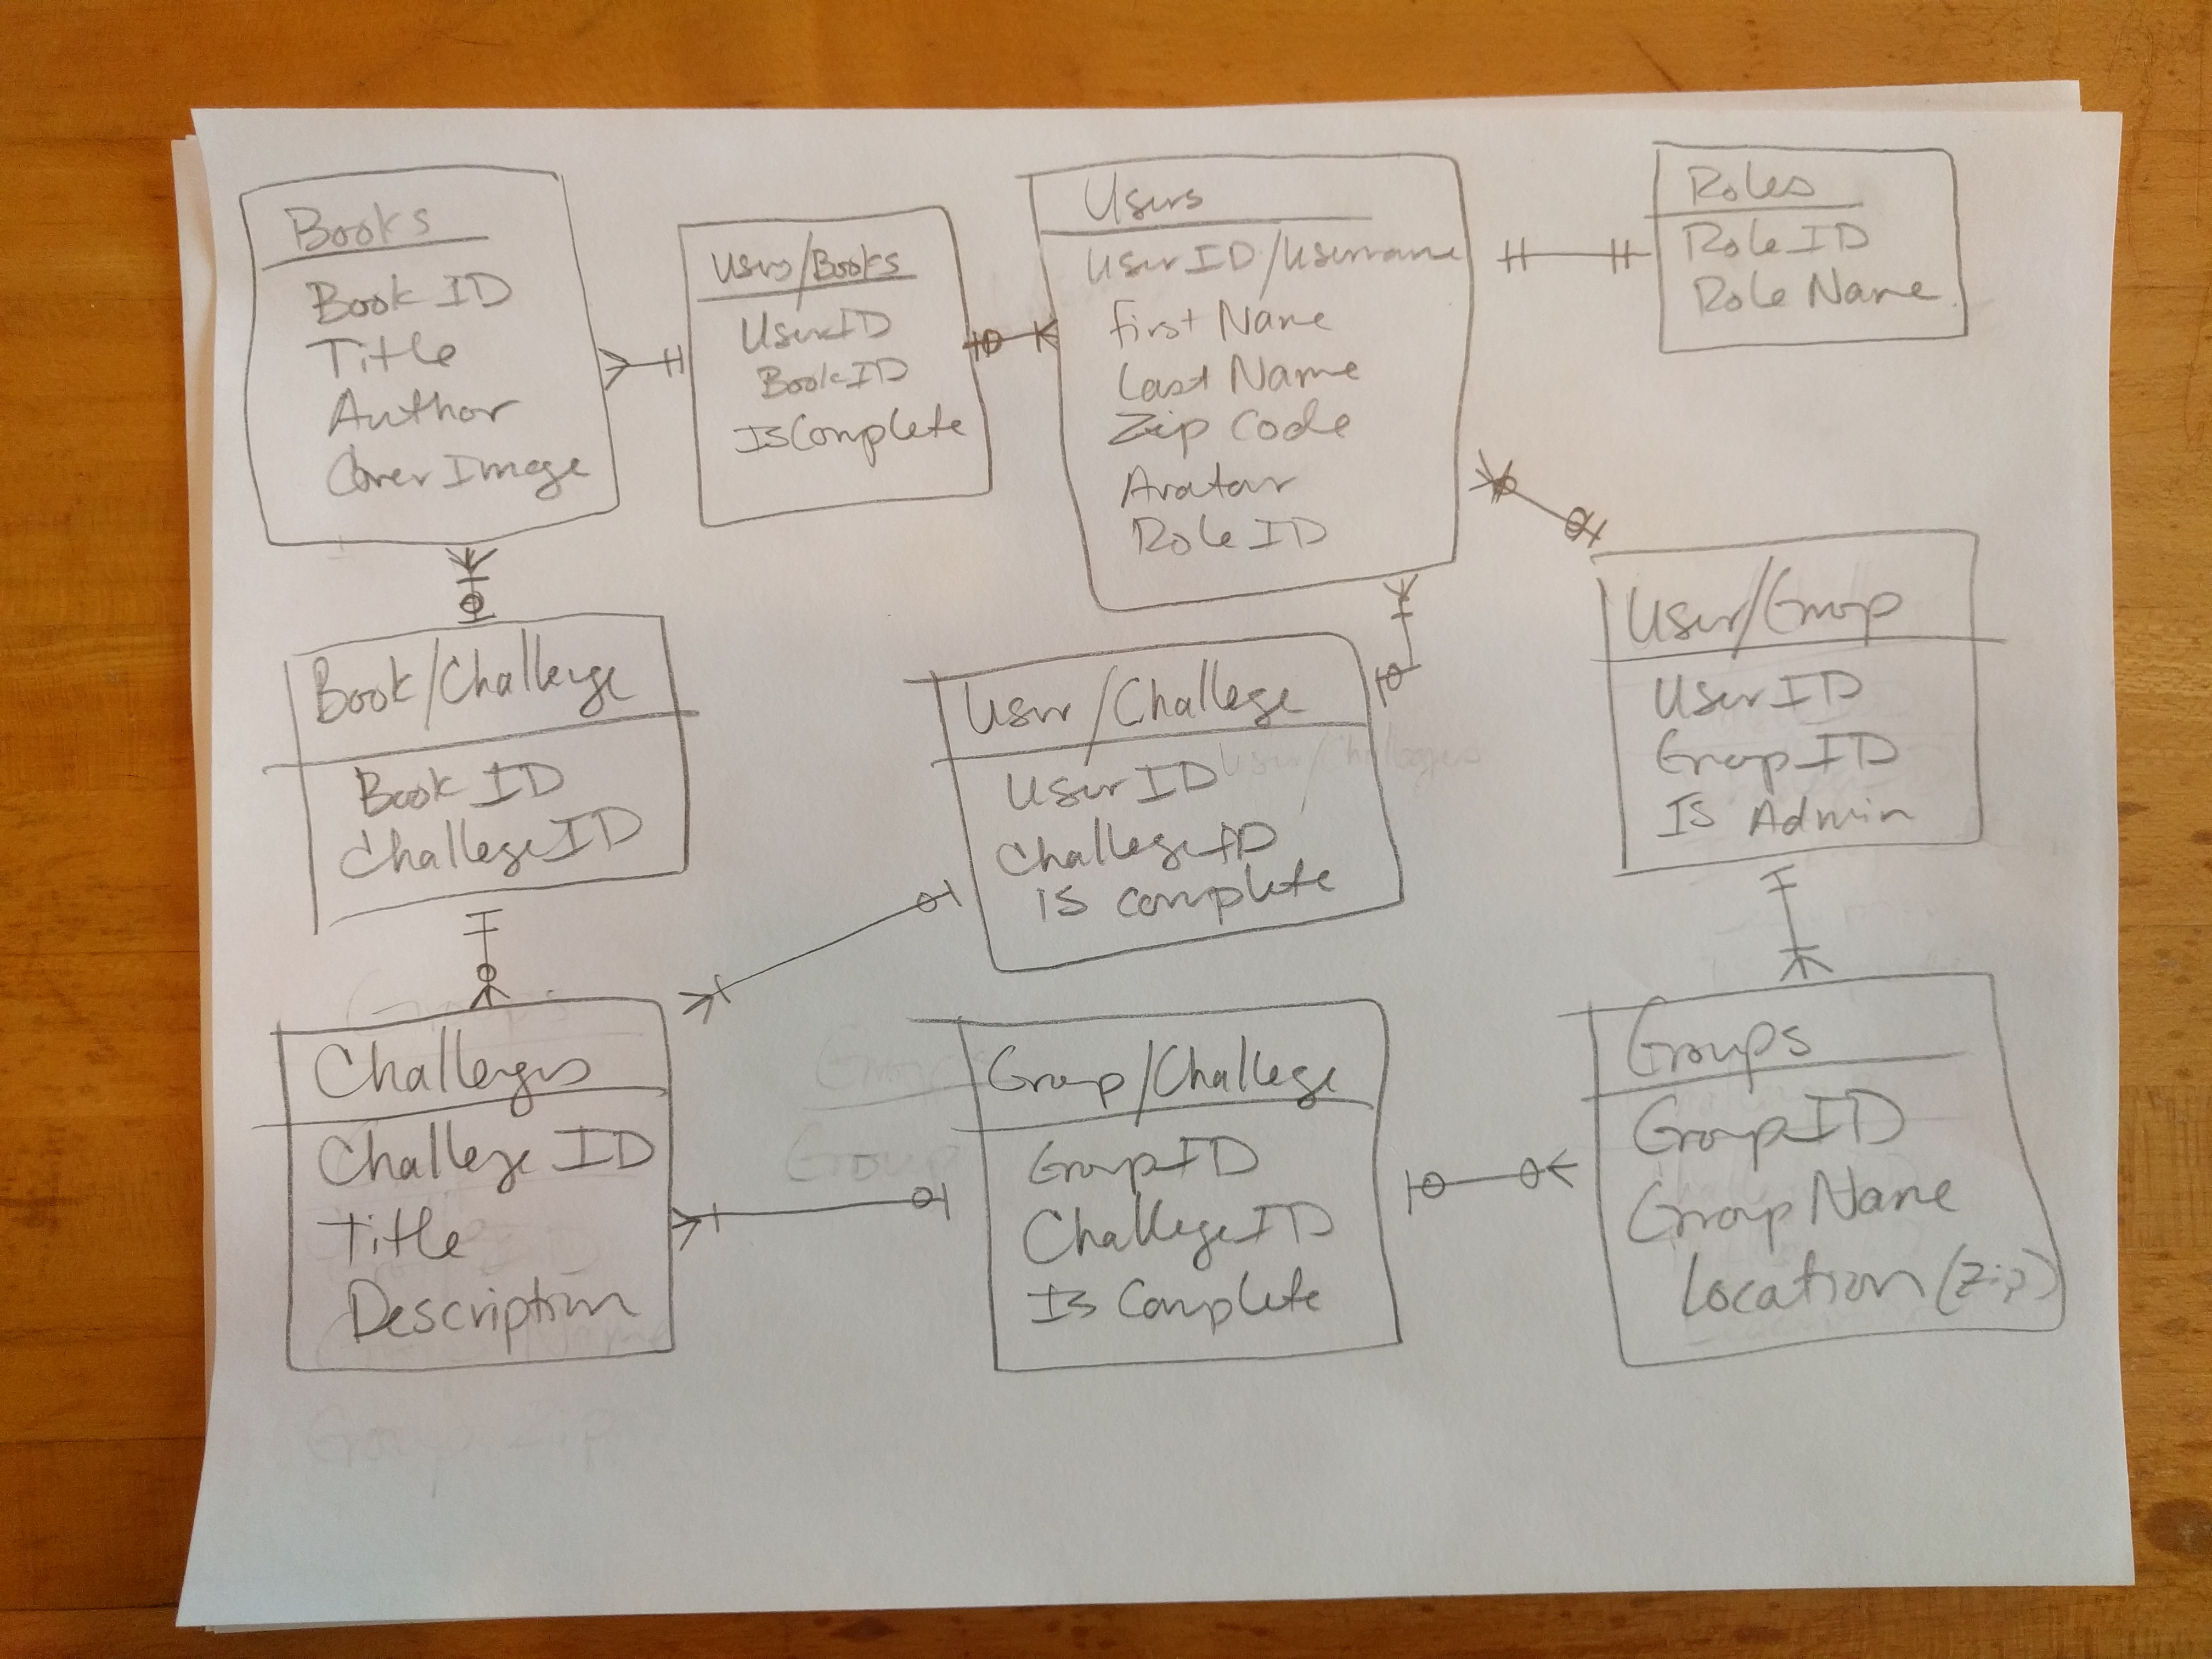 Books
Book ID
Title
Author
Cover Image
Users/Books
UserID
BookID
IsComplete
Users
User ID/Username
First Name
Last Name
Zip Code
Avatar
Role ID
Roles
Role ID
Role Name
Book/Challenge
Book ID
Challege ID
User/Challege
User ID
Challege ID
is complete
User/Challeges
User/Group
User ID
Group ID
Is Admin
Challenges
Challege ID
Title
Description
Group/Challege
Group ID
Challege ID
Is Complete
Groups
Group ID
Group Name
Location (Zip)
Groups
Group
Group Zip